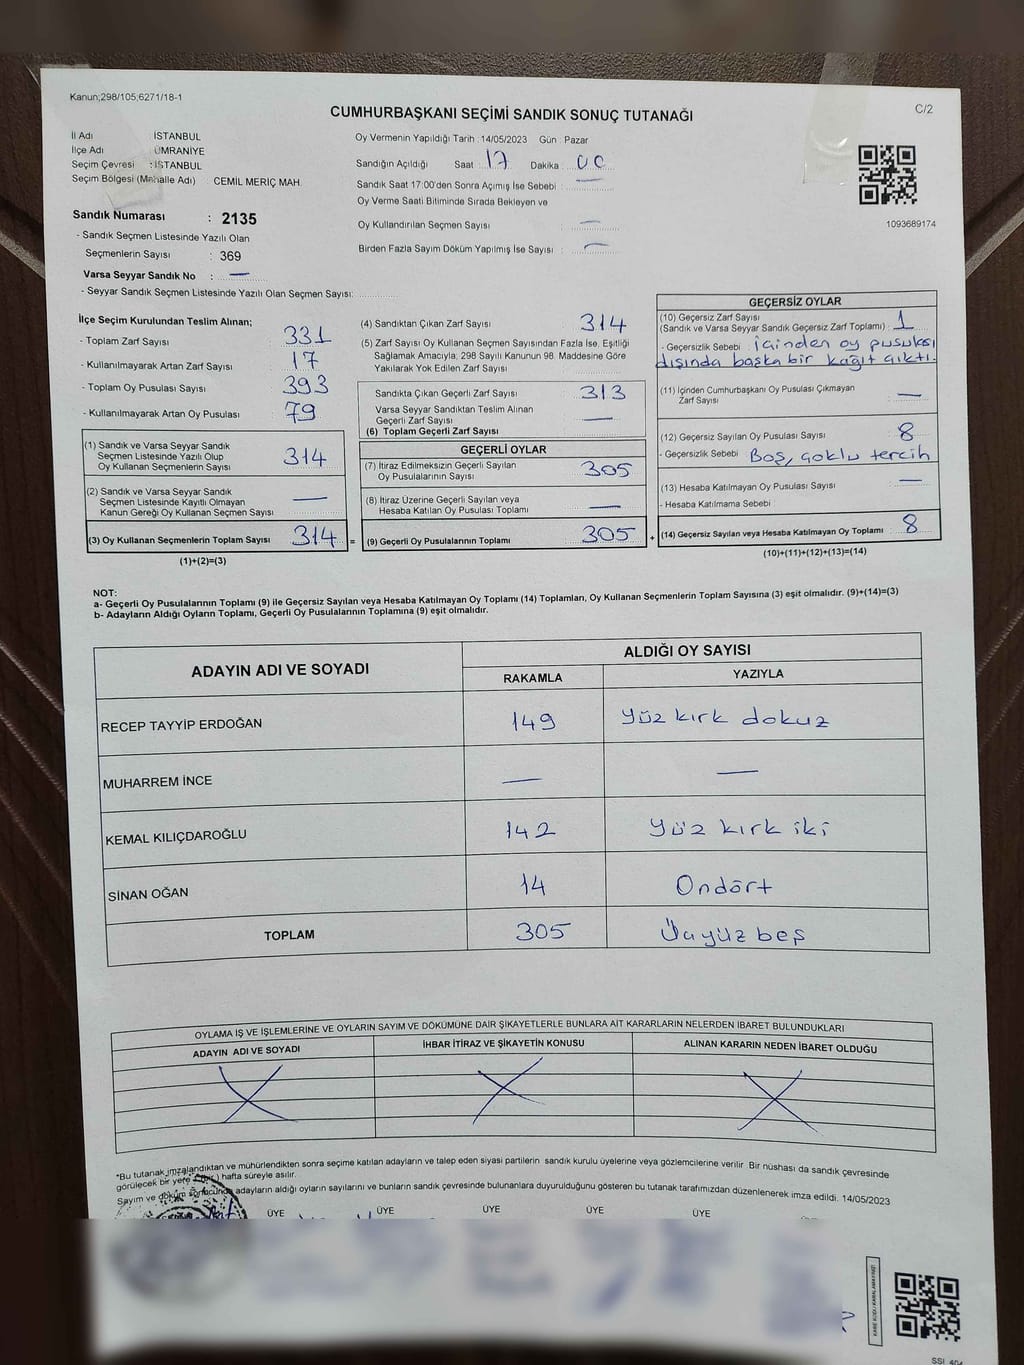 Kanun;298/105;6271/18-1
C/2
CUMHURBAŞKANI SEÇİMİ SANDIK SONUÇ TUTANAĞI
İl Adı İSTANBUL
İlçe Adı ÜMRANİYE
Seçim Çevresi : İSTANBUL
Seçim Bölgesi (Mahalle Adı) CEMİL MERİÇ MAH.
Sandık Numarası : 2135
- Sandık Seçmen Listesinde Yazılı Olan
Seçmenlerin Sayısı : 369
Varsa Seyyar Sandık No : —
- Seyyar Sandık Seçmen Listesinde Yazılı Olan Seçmen Sayısı:
Oy Vermenin Yapıldığı Tarih : 14/05/2023 Gün : Pazar
Sandığın Açıldığı Saat : 17 Dakika : 00
Sandık Saat 17:00'den Sonra Açımış İse Sebebi : —
Oy Verme Saati Bitiminde Sırada Bekleyen ve
Oy Kullandırılan Seçmen Sayısı : —
Birden Fazla Sayım Döküm Yapılmış İse Sayısı : —
1093689174
İlçe Seçim Kurulundan Teslim Alınan;
- Toplam Zarf Sayısı : 331
- Kullanılmayarak Artan Zarf Sayısı : 17
- Toplam Oy Pusulası Sayısı : 393
- Kullanılmayarak Artan Oy Pusulası : 79
(1) Sandık ve Varsa Seyyar Sandık
Seçmen Listesinde Yazılı Olup
Oy Kullanan Seçmenlerin Sayısı : 314
(2) Sandık ve Varsa Seyyar Sandık
Seçmen Listesinde Kayıtlı Olmayan
Kanun Gereği Oy Kullanan Seçmen Sayısı : —
(3) Oy Kullanan Seçmenlerin Toplam Sayısı 314 =
(1)+(2)=(3)
(4) Sandıktan Çıkan Zarf Sayısı : 314
(5) Zarf Sayısı Oy Kullanan Seçmen Sayısından Fazla İse, Eşitliği
Sağlamak Amacıyla; 298 Sayılı Kanunun 98. Maddesine Göre
Yakılarak Yok Edilen Zarf Sayısı
Sandıkta Çıkan Geçerli Zarf Sayısı : 313
Varsa Seyyar Sandıktan Teslim Alınan
Geçerli Zarf Sayısı : —
(6) Toplam Geçerli Zarf Sayısı
GEÇERLİ OYLAR
(7) İtiraz Edilmeksizin Geçerli Sayılan
Oy Pusulalarının Sayısı : 305
(8) İtiraz Üzerine Geçerli Sayılan veya
Hesaba Katılan Oy Pusulası Toplamı : —
(9) Geçerli Oy Pusulalarının Toplamı : 305 +
GEÇERSİZ OYLAR
(10) Geçersiz Zarf Sayısı
(Sandık ve Varsa Seyyar Sandık Geçersiz Zarf Toplamı) : 1
- Geçersizlik Sebebi : içinden oy pusulası
dışında başka bir kağıt çıktı.
(11) İçinden Cumhurbaşkanı Oy Pusulası Çıkmayan
Zarf Sayısı : —
(12) Geçersiz Sayılan Oy Pusulası Sayısı : 8
- Geçersizlik Sebebi : Boş, çoklu tercih
(13) Hesaba Katılmayan Oy Pusulası Sayısı : —
- Hesaba Katılmama Sebebi
(14) Geçersiz Sayılan veya Hesaba Katılmayan Oy Toplamı : 8
(10)+(11)+(12)+(13)=(14)
NOT:
a- Geçerli Oy Pusulalarının Toplamı (9) ile Geçersiz Sayılan veya Hesaba Katılmayan Oy Toplamı (14) Toplamları, Oy Kullanan Seçmenlerin Toplam Sayısına (3) eşit olmalıdır. (9)+(14)=(3)
b- Adayların Aldığı Oyların Toplamı, Geçerli Oy Pusulalarının Toplamına (9) eşit olmalıdır.
ADAYIN ADI VE SOYADI
ALDIĞI OY SAYISI
RAKAMLA YAZIYLA
RECEP TAYYİP ERDOĞAN 149 Yüz kırk dokuz
MUHARREM İNCE — —
KEMAL KILIÇDAROĞLU 142 Yüz kırk iki
SİNAN OĞAN 14 Ondört
TOPLAM 305 Üçyüz beş
OYLAMA İŞ VE İŞLEMLERİNE VE OYLARIN SAYIM VE DÖKÜMÜNE DAİR ŞİKAYETLERLE BUNLARA AİT KARARLARIN NELERDEN İBARET BULUNDUKLARI
ADAYIN ADI VE SOYADI İHBAR İTİRAZ VE ŞİKAYETİN KONUSU ALINAN KARARIN NEDEN İBARET OLDUĞU
*Bu tutanak imzalandıktan ve mühürlendikten sonra seçime katılan adayların ve talep eden siyasi partilerin sandık kurulu üyelerine veya gözlemcilerine verilir. Bir nüshası da sandık çevresinde
görülecek bir yere (Bir) hafta süreyle asılır.
Sayım ve döküm sonucunda adayların aldığı oyların sayılarını ve bunların sandık çevresinde bulunanlara duyurulduğunu gösteren bu tutanak tarafımızdan düzenlenerek imza edildi. 14/05/2023
ÜYE ÜYE ÜYE ÜYE ÜYE